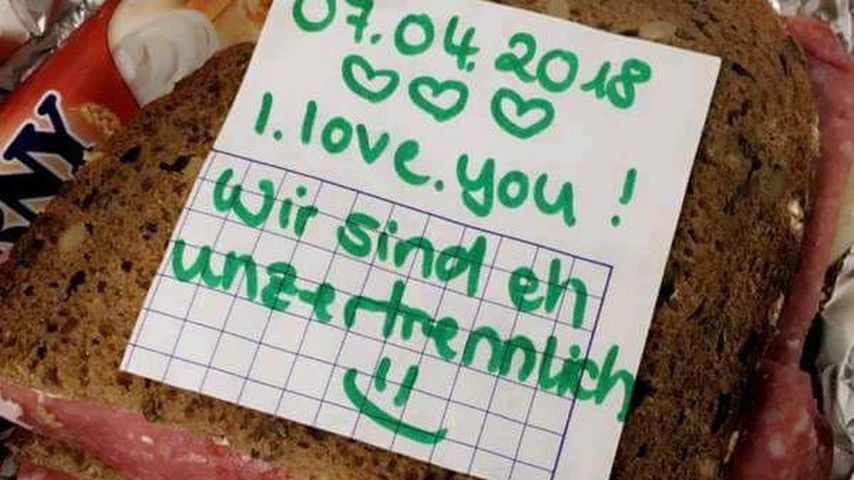 07.04.2018
I. love. you !
wir sind eh
unzertrennlich
RNY